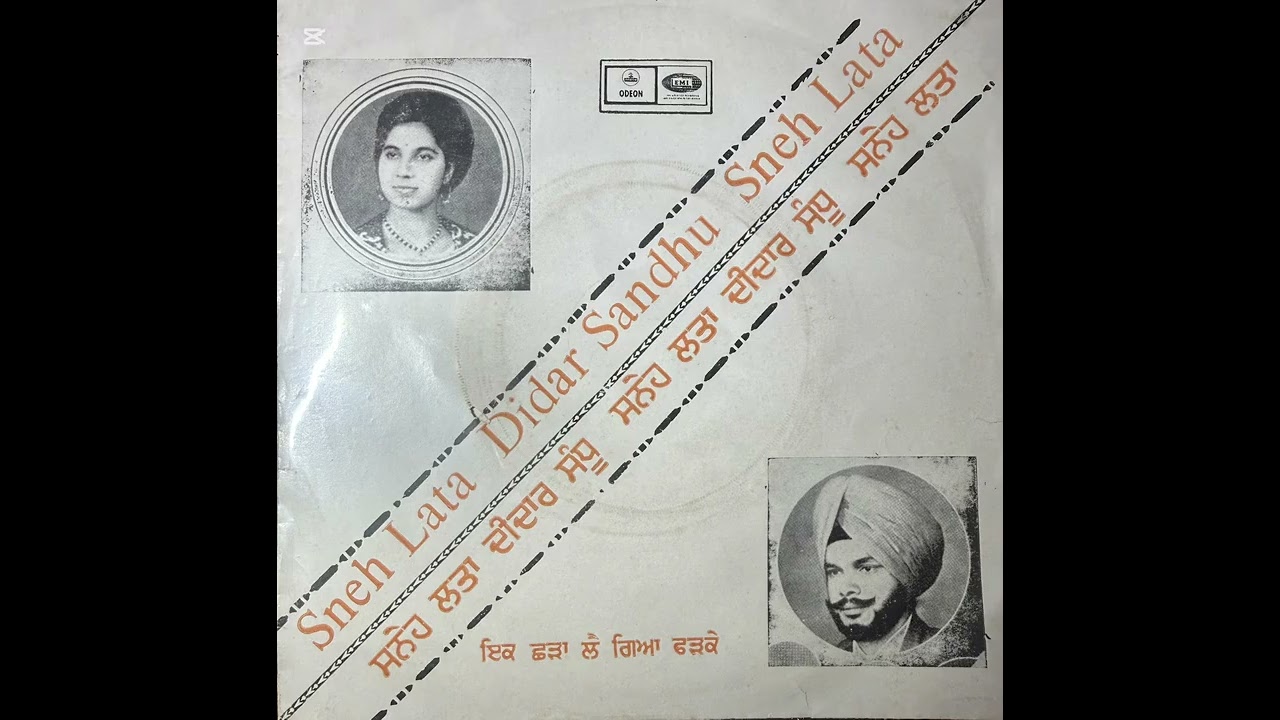 ODEON
EMI
Sneh Lata Didar Sandhu Sneh Lata
ਸਨੇਹ ਲਤਾ ਦੀਦਾਰ ਸੰਧੂ ਸਨੇਹ ਲਤਾ ਦੀਦਾਰ ਸੰਧੂ ਸਨੇਹ ਲਤਾ
ਇਕ ਛੜਾ ਲੈ ਗਿਆ ਫੜਕੇ